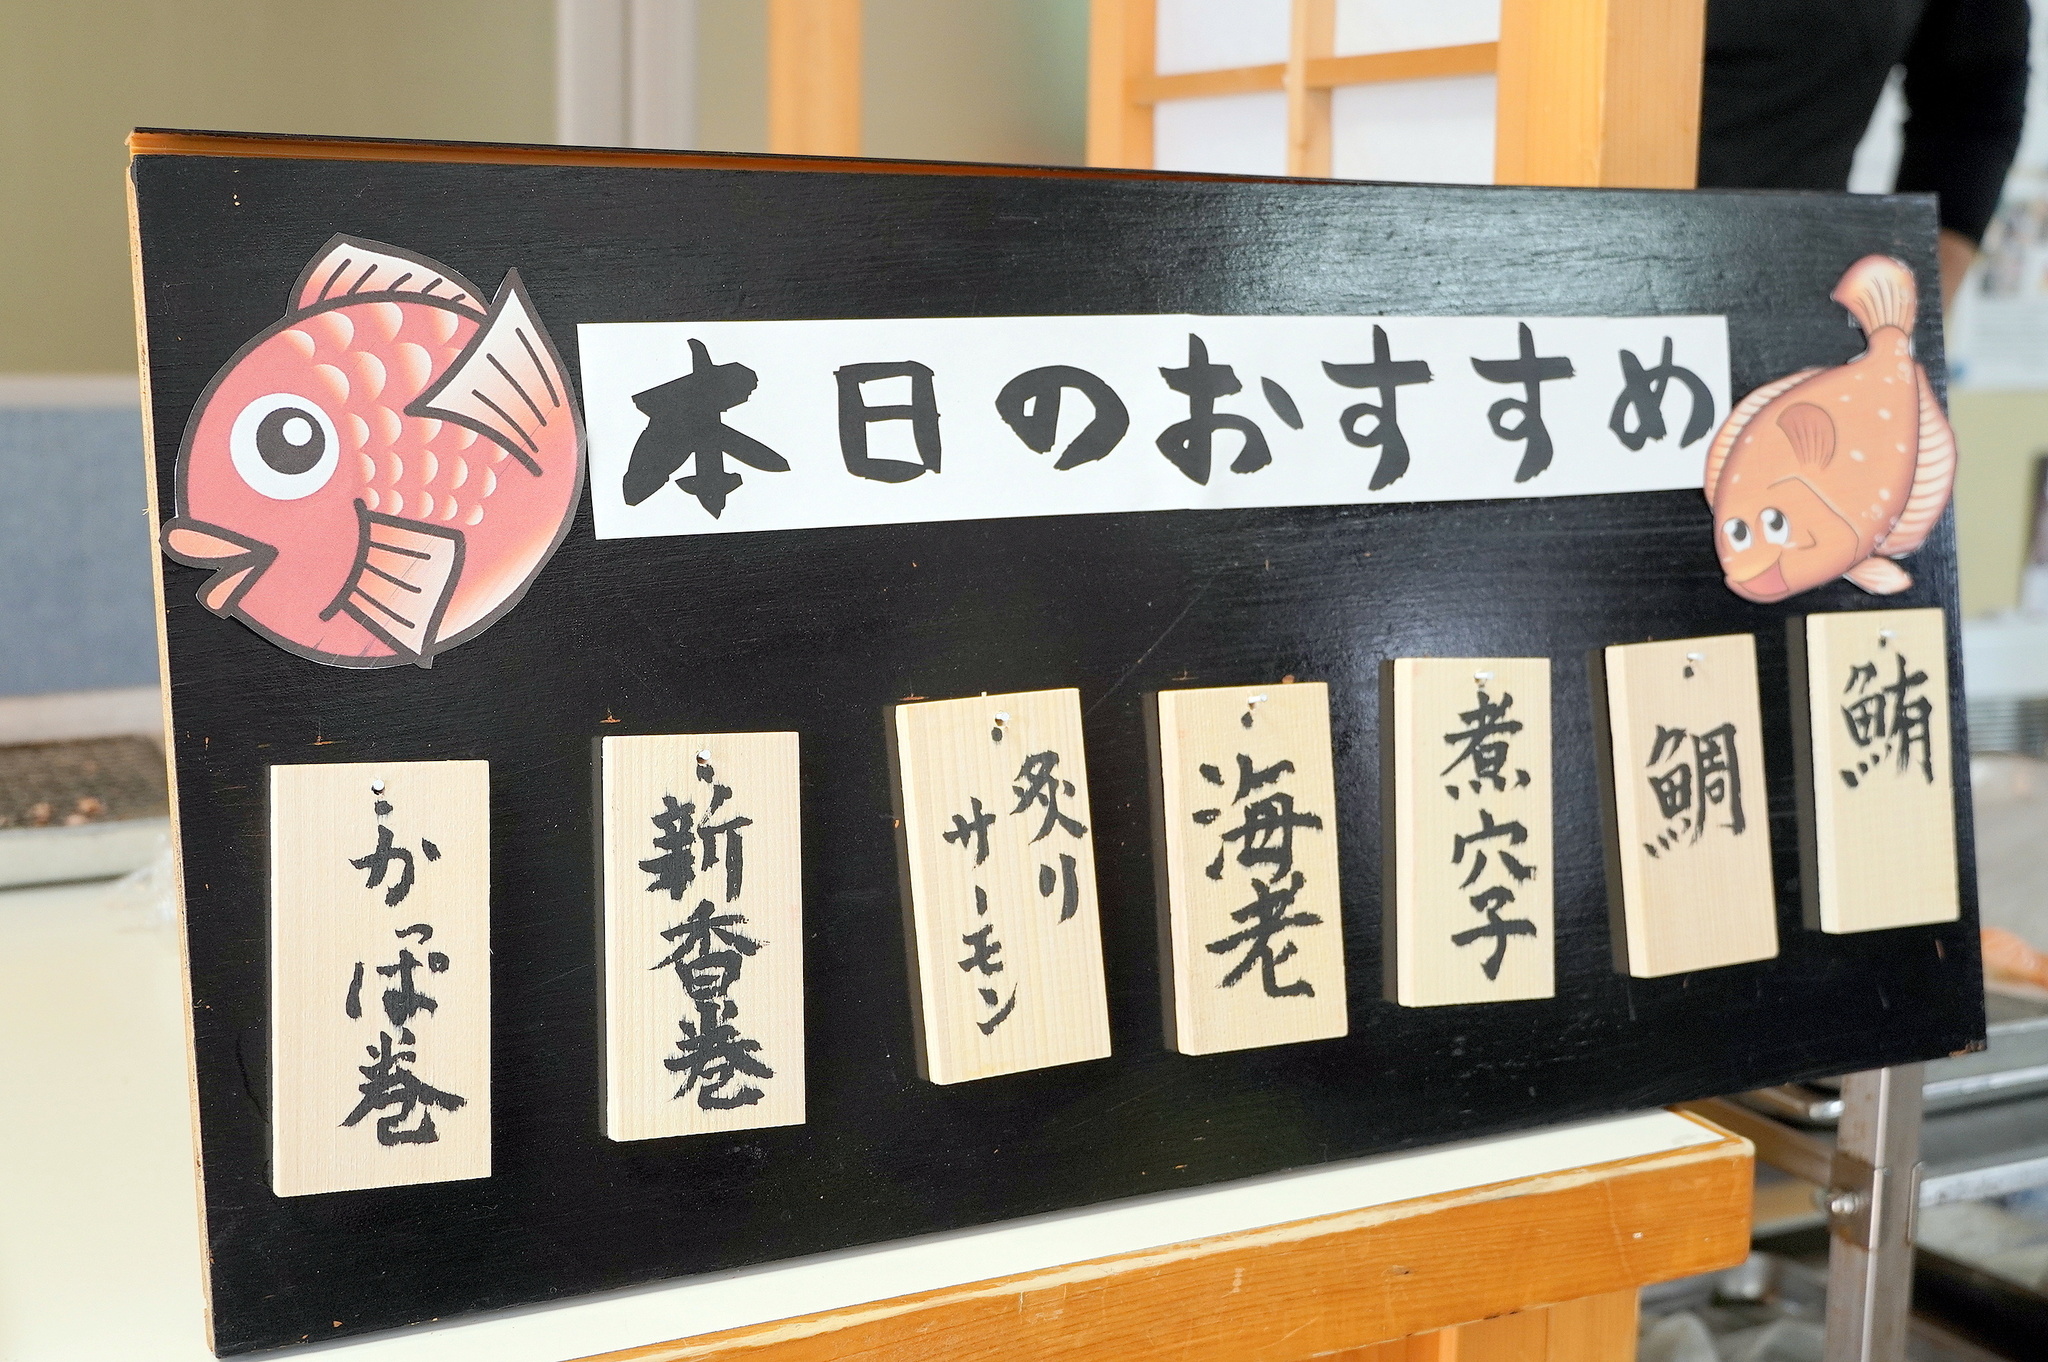 本日のおすすめ
鮪
鯛
煮穴子
海老
炙り
サーモン
新香巻
かっぱ巻